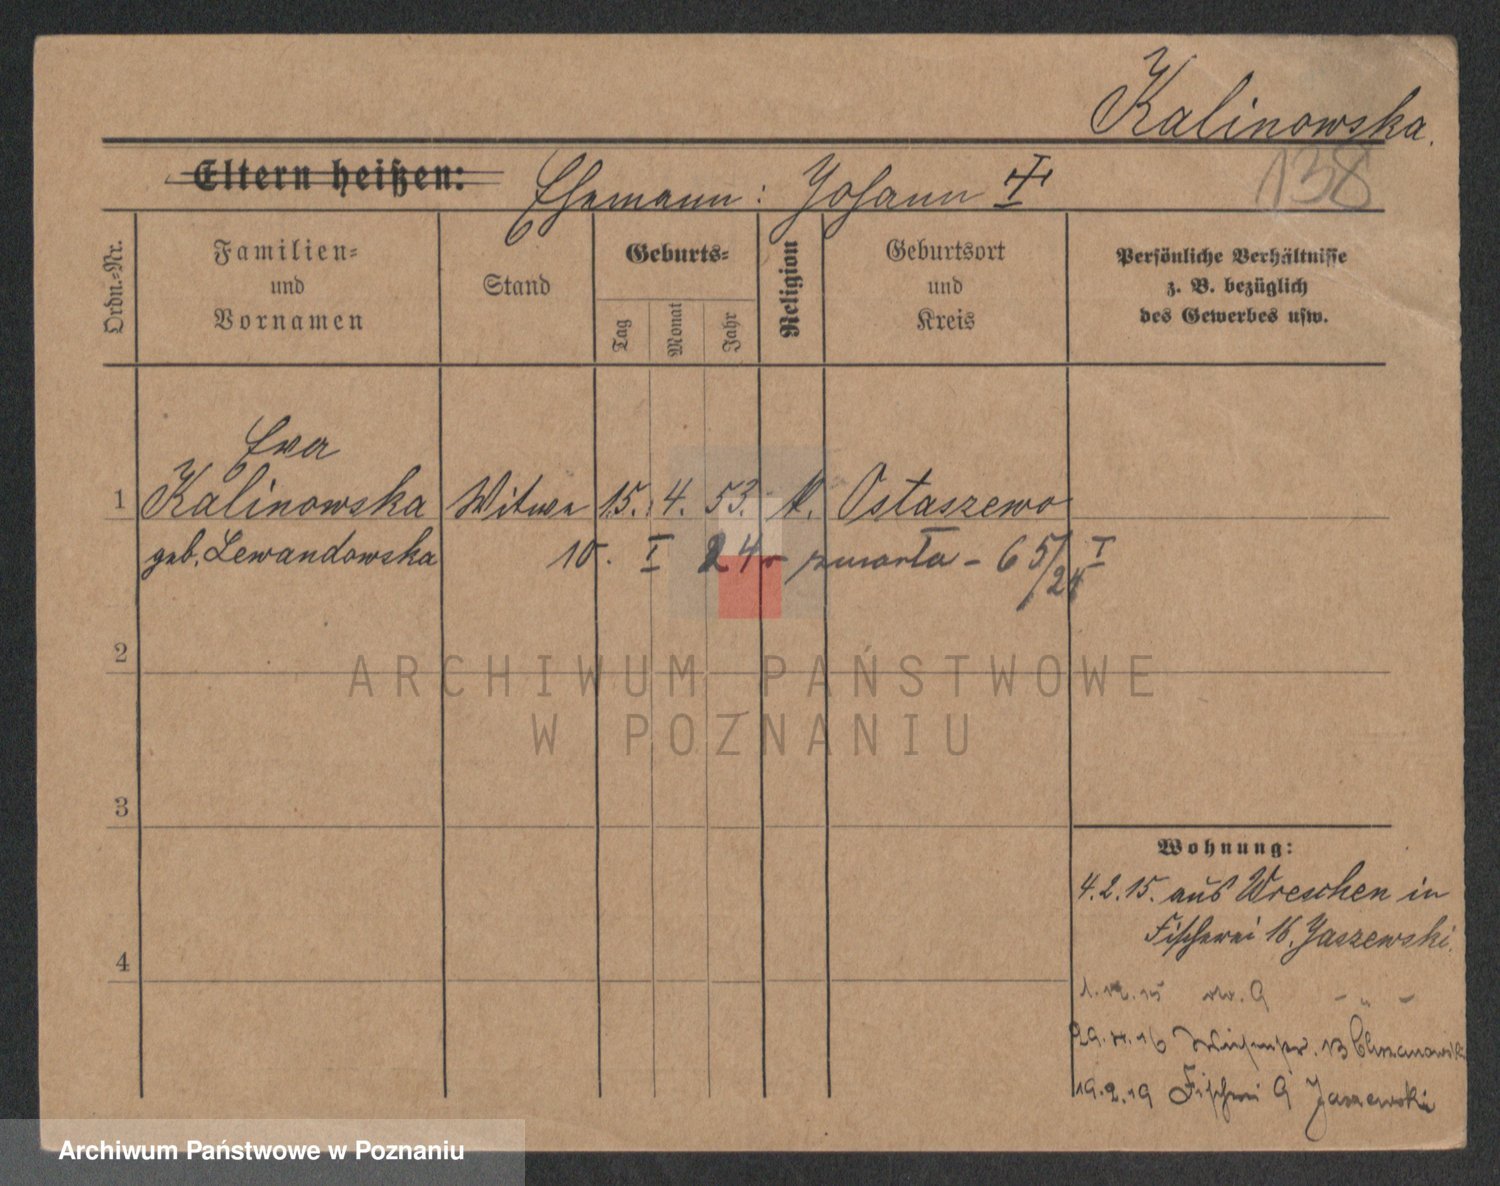 Kalinowska.
138
Eltern heißen: Ehemann: Johann
Ordn.=Nr.
Familien=
und
Vornamen
Stand
Geburts=
Tag
Monat
Jahr
Religion
Geburtsort
und
Kreis
Persönliche Verhältnisse
z. B. bezüglich
des Gewerbes usw.
Ewa
1 Kalinowska Witwe 15. 4. 53. K. Ostaszewo
geb. Lewandowska 10. I 24 zmarła - 65/24 I
2
3
4
Wohnung:
4.2.15. aus Wreschen in
Fischerei 16. Jaszewski.
1.12.15 9 - " -
29. 16 13
19.2.19 Fischerei 9 Jaszewski
ARCHIWUM PAŃSTWOWE
W POZNANIU
Archiwum Państwowe w Poznaniu